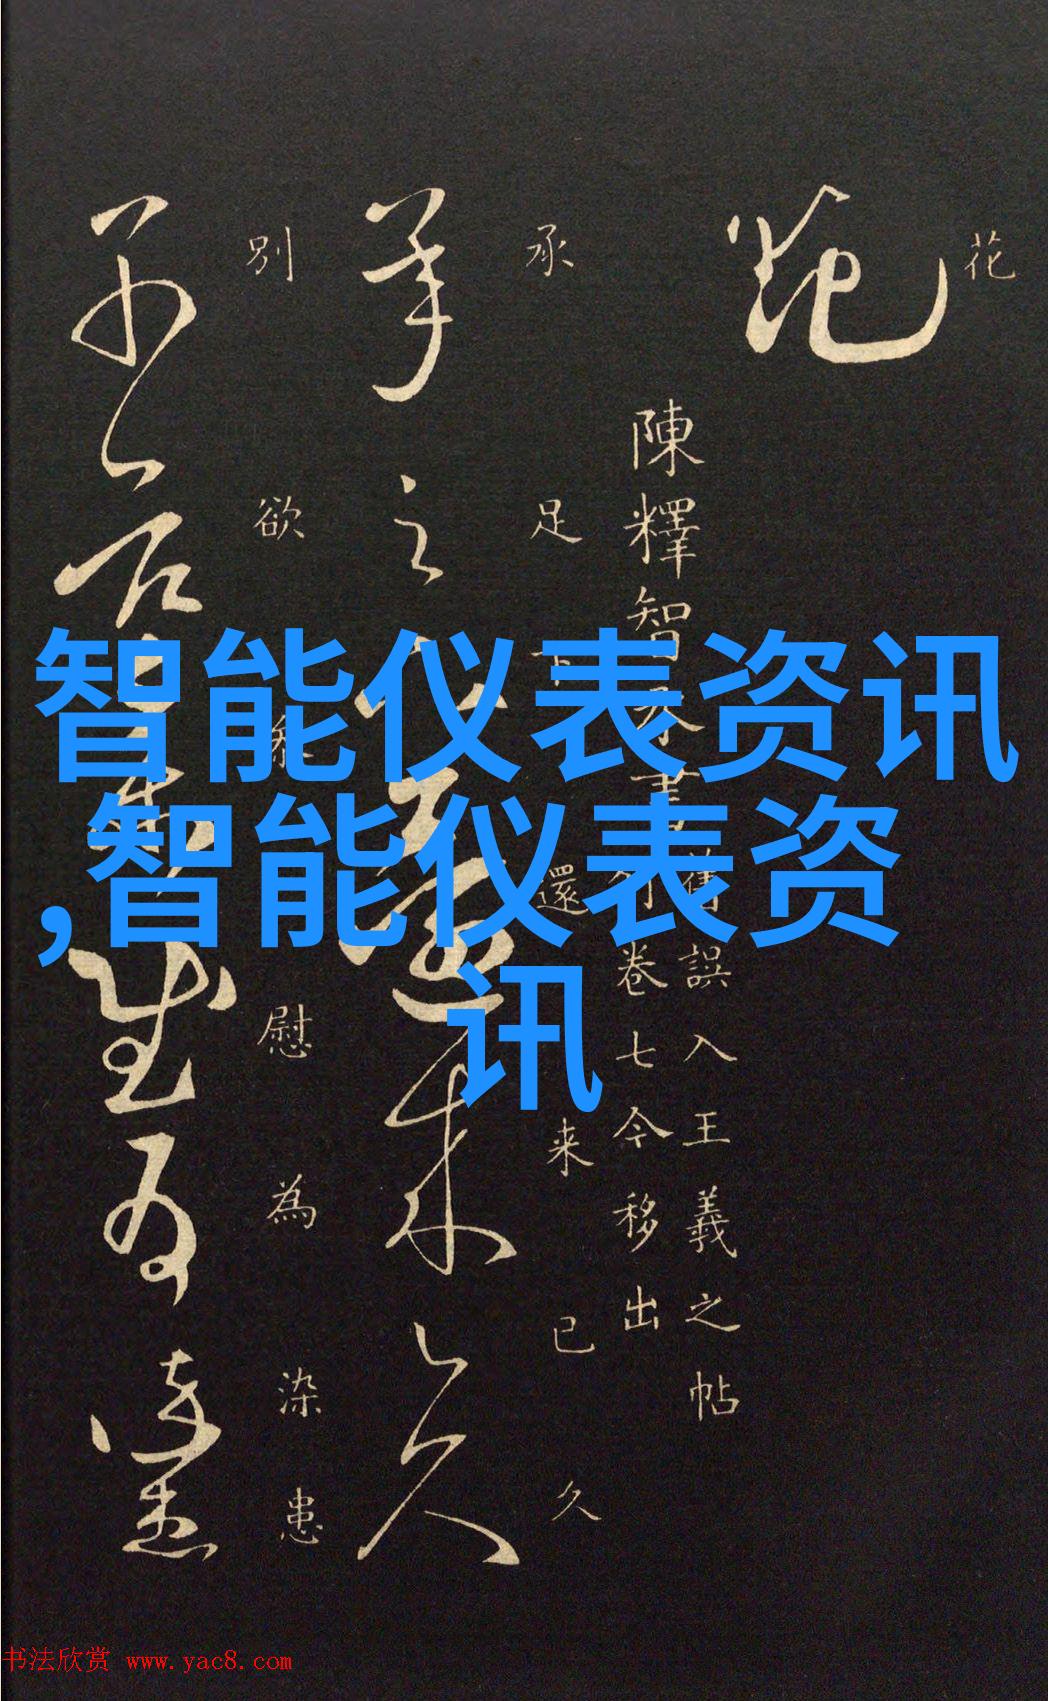 花
陳釋智永書舊誤入王羲之帖
今卷七今移出
承足下還来已久
別欲慰為染患
智能仪表资讯
,智能仪表资
讯
书法欣赏 www.yac8.com